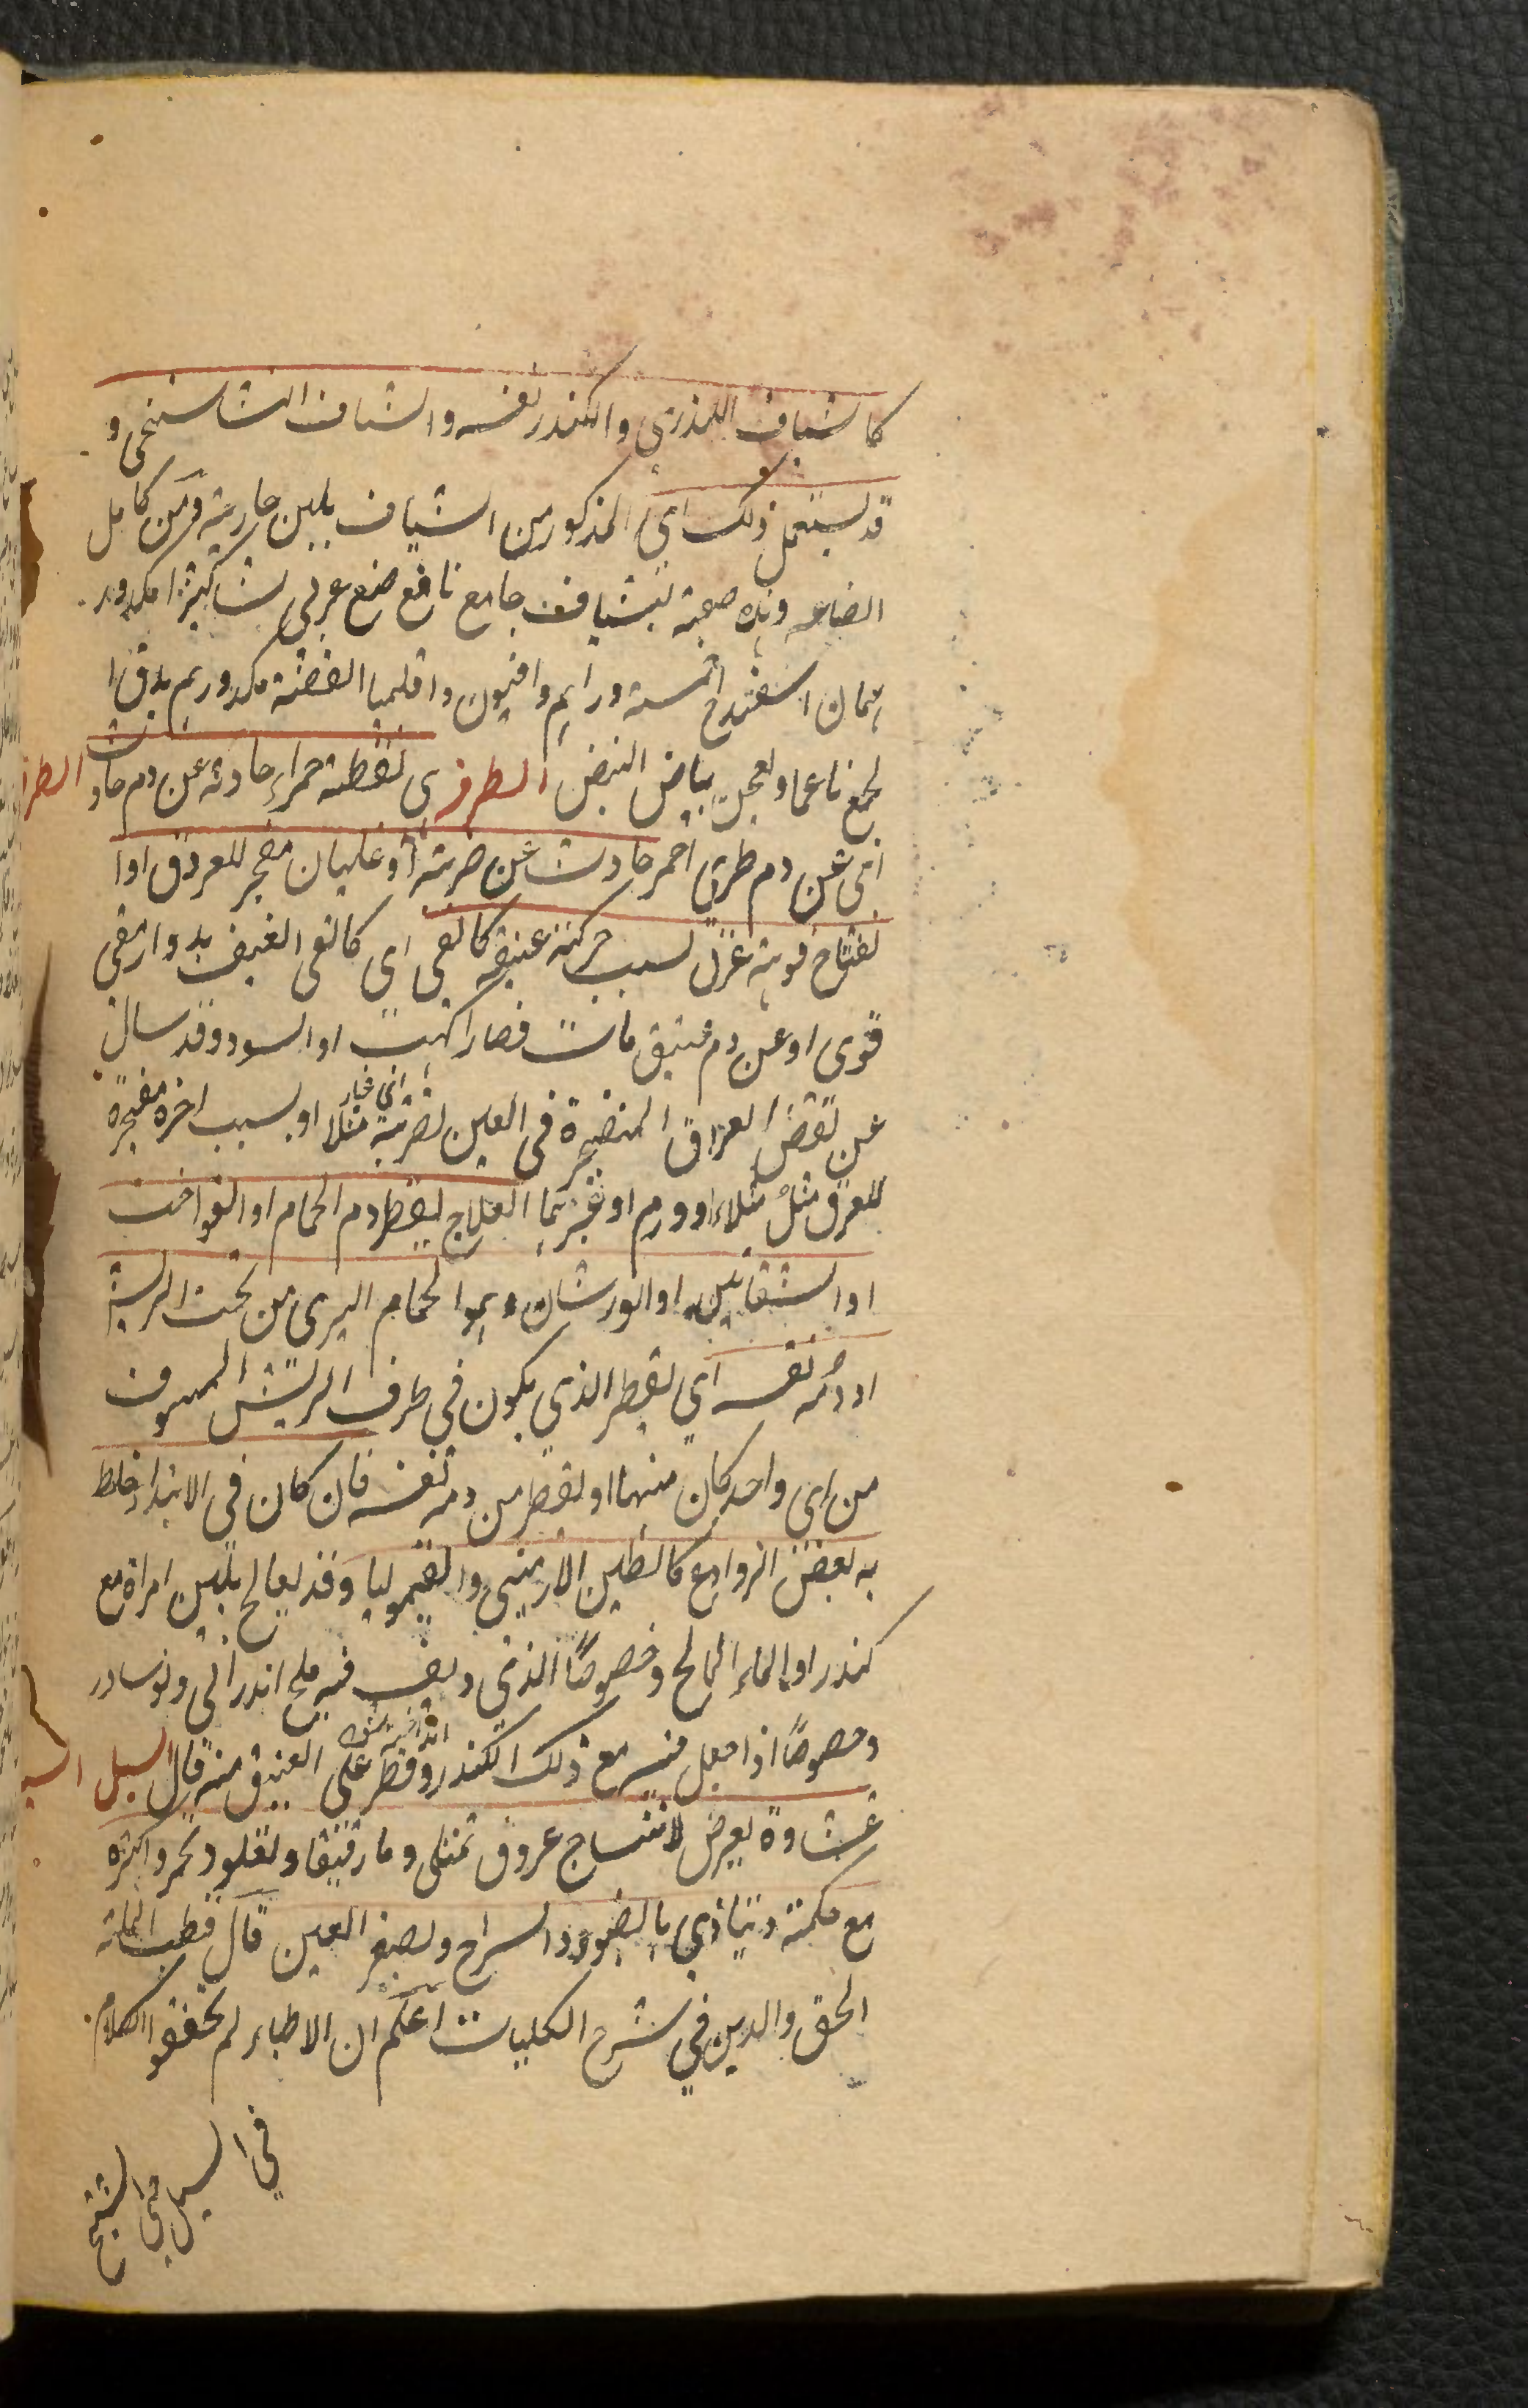 كالشياف الكندري والكندر نفسه والشياف الشاسنجى و
قد يستعمل ذلك اى المذكور من الشياف بلبن جارية ومن كامل
الصناعه وهذه صفة شياف جامع نافع صمغ عربى كثيرا مكدوىد
اثمان اسفيداج خمسة دراهم وافيون واقليميا الفضة مكدورهم يدق ا
لجمع ناعما ويعجن ببياض البيض الطرفه هى نقطة حمراء حادثة عن دم حادث الطرفه
اى عن دم طرى احمر حادث عن ضربة او غليان مفجر للعروق او ا
نفتاح فوهة عرق بسبب حركة عنيفة كالقى اى كالقى العنيف بدواء مقى
قوى او عن دم عتيق مائت فصار اكهب او اسود وقد سال
عن بعض العروق المنفجرة فى العين لضربة مثلا او بسبب اخر مفجرة
للعرق مثل امتلاء او ورم او غيرهما العلاج يقطر دم الحمام او الفواخت
او الشفانين او الورشان وهو الحمام البرى من تحت الريش
او دمه نفسه اى يقطر الذي يكون في طرف الريش المنتوف
من اى واحد كان منهما او يقطر من دمه نفسه فان كان في الابتداء خلط
به بعض الروادع كالطين الارمنى والقيموليا وقد يعالج بلبن امراة مع
كندر او الماء المالح وخصوصا الذى ديف فيه ملح اندرانى ونوشادر
وخصوصا اذا جعل فيه مع ذلك الكندر وقطر على العتيق منه قال السبل السبل
غشاوة يعرض لانتساج عروق تمتلى دما رقيقا وتغلظ وتحمر واكثره
مع حكة وتتاذى بالضوء والسراج ويصغر العين قال قطب الملة
الحق والدين في شرح الكليات اعلم ان الاطباء لم يحققوا الكلام
في السبل حتى الشيخ